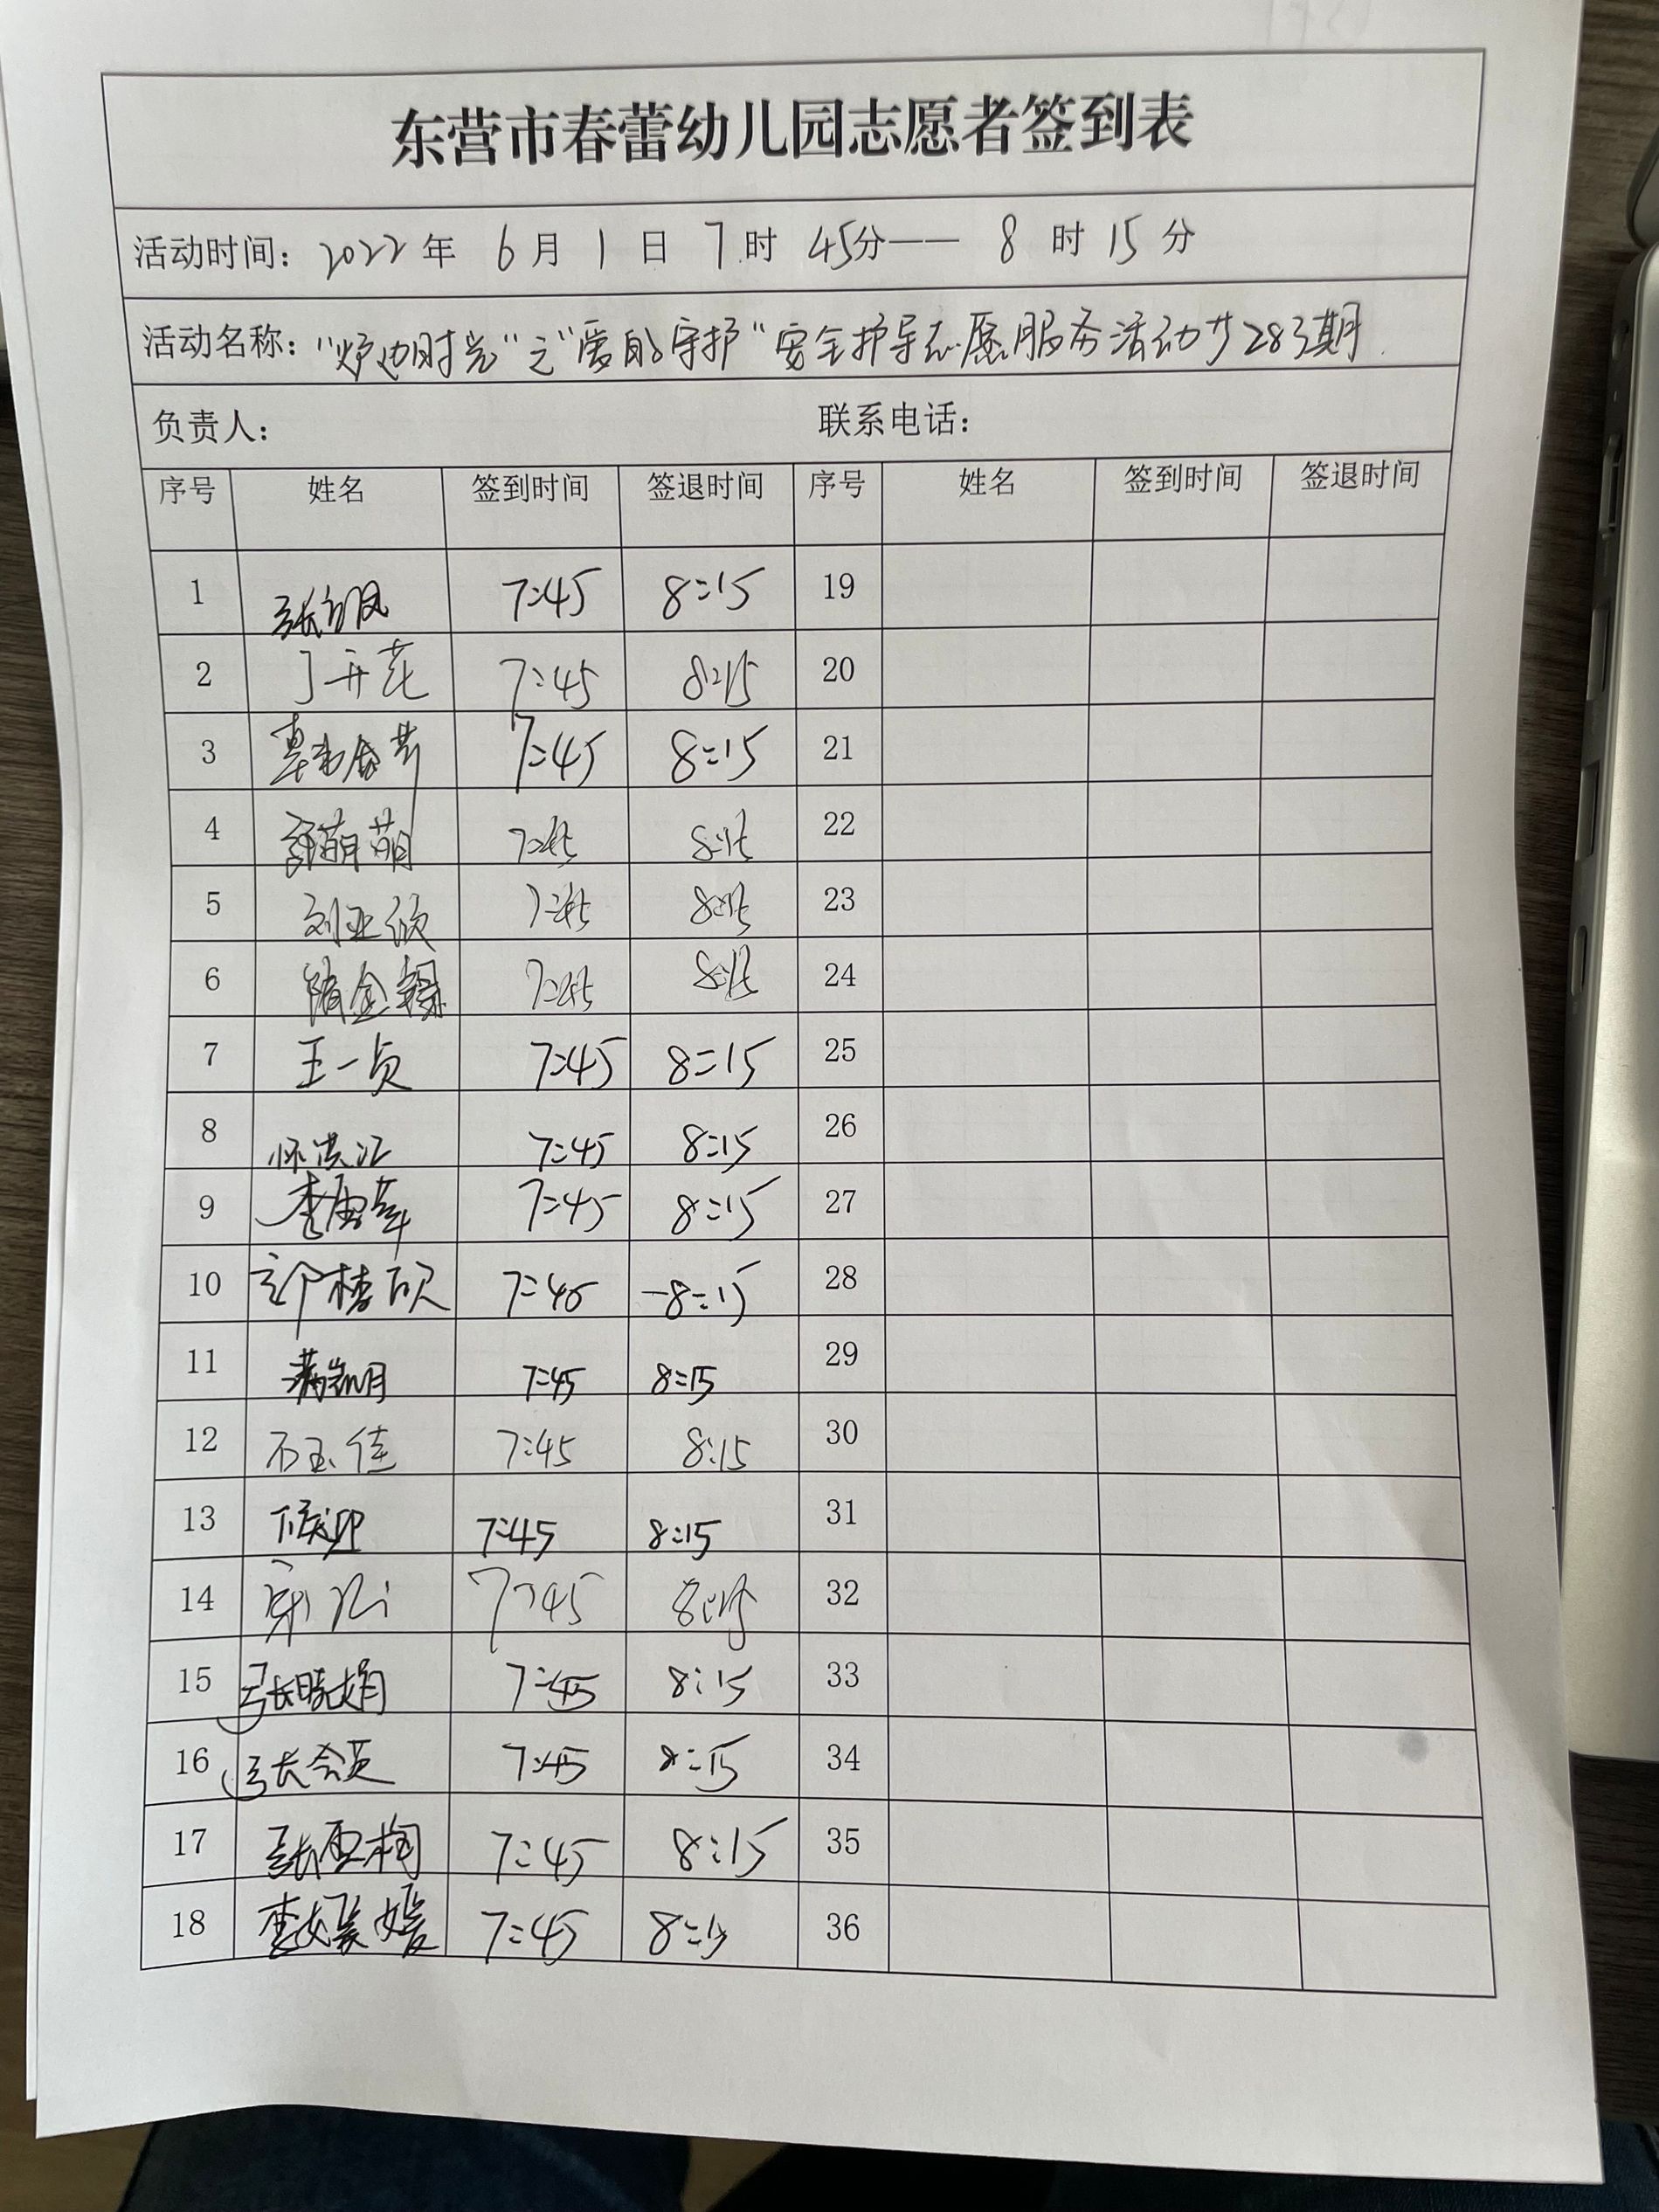 东营市春蕾幼儿园志愿者签到表
活动时间：2022年 6月 1日 7时 45分—— 8时 15分
活动名称："炉边时光"之"爱的守护"安全护导志愿服务活动第283期
负责人： 联系电话：
序号 姓名 签到时间 签退时间 序号 姓名 签到时间 签退时间
1 7:45 8:15 19
2 丁开花 7:45 8:15 20
3 7:45 8:15 21
4 萌萌 7:45 8:15 22
5 刘亚欣 7:45 8:15 23
6 隋金 7:45 8:15 24
7 王一贞 7:45 8:15 25
8 怀洪江 7:45 8:15 26
9 李 7:45 8:15 27
10 7:45 8:15 28
11 7:45 8:15 29
12 石玉佳 7:45 8:15 30
13 7:45 8:15 31
14 7:45 8:15 32
15 张晓娟 7:45 8:15 33
16 张会英 7:45 8:15 34
17 张亚梅 7:45 8:15 35
18 李媛媛 7:45 8:15 36